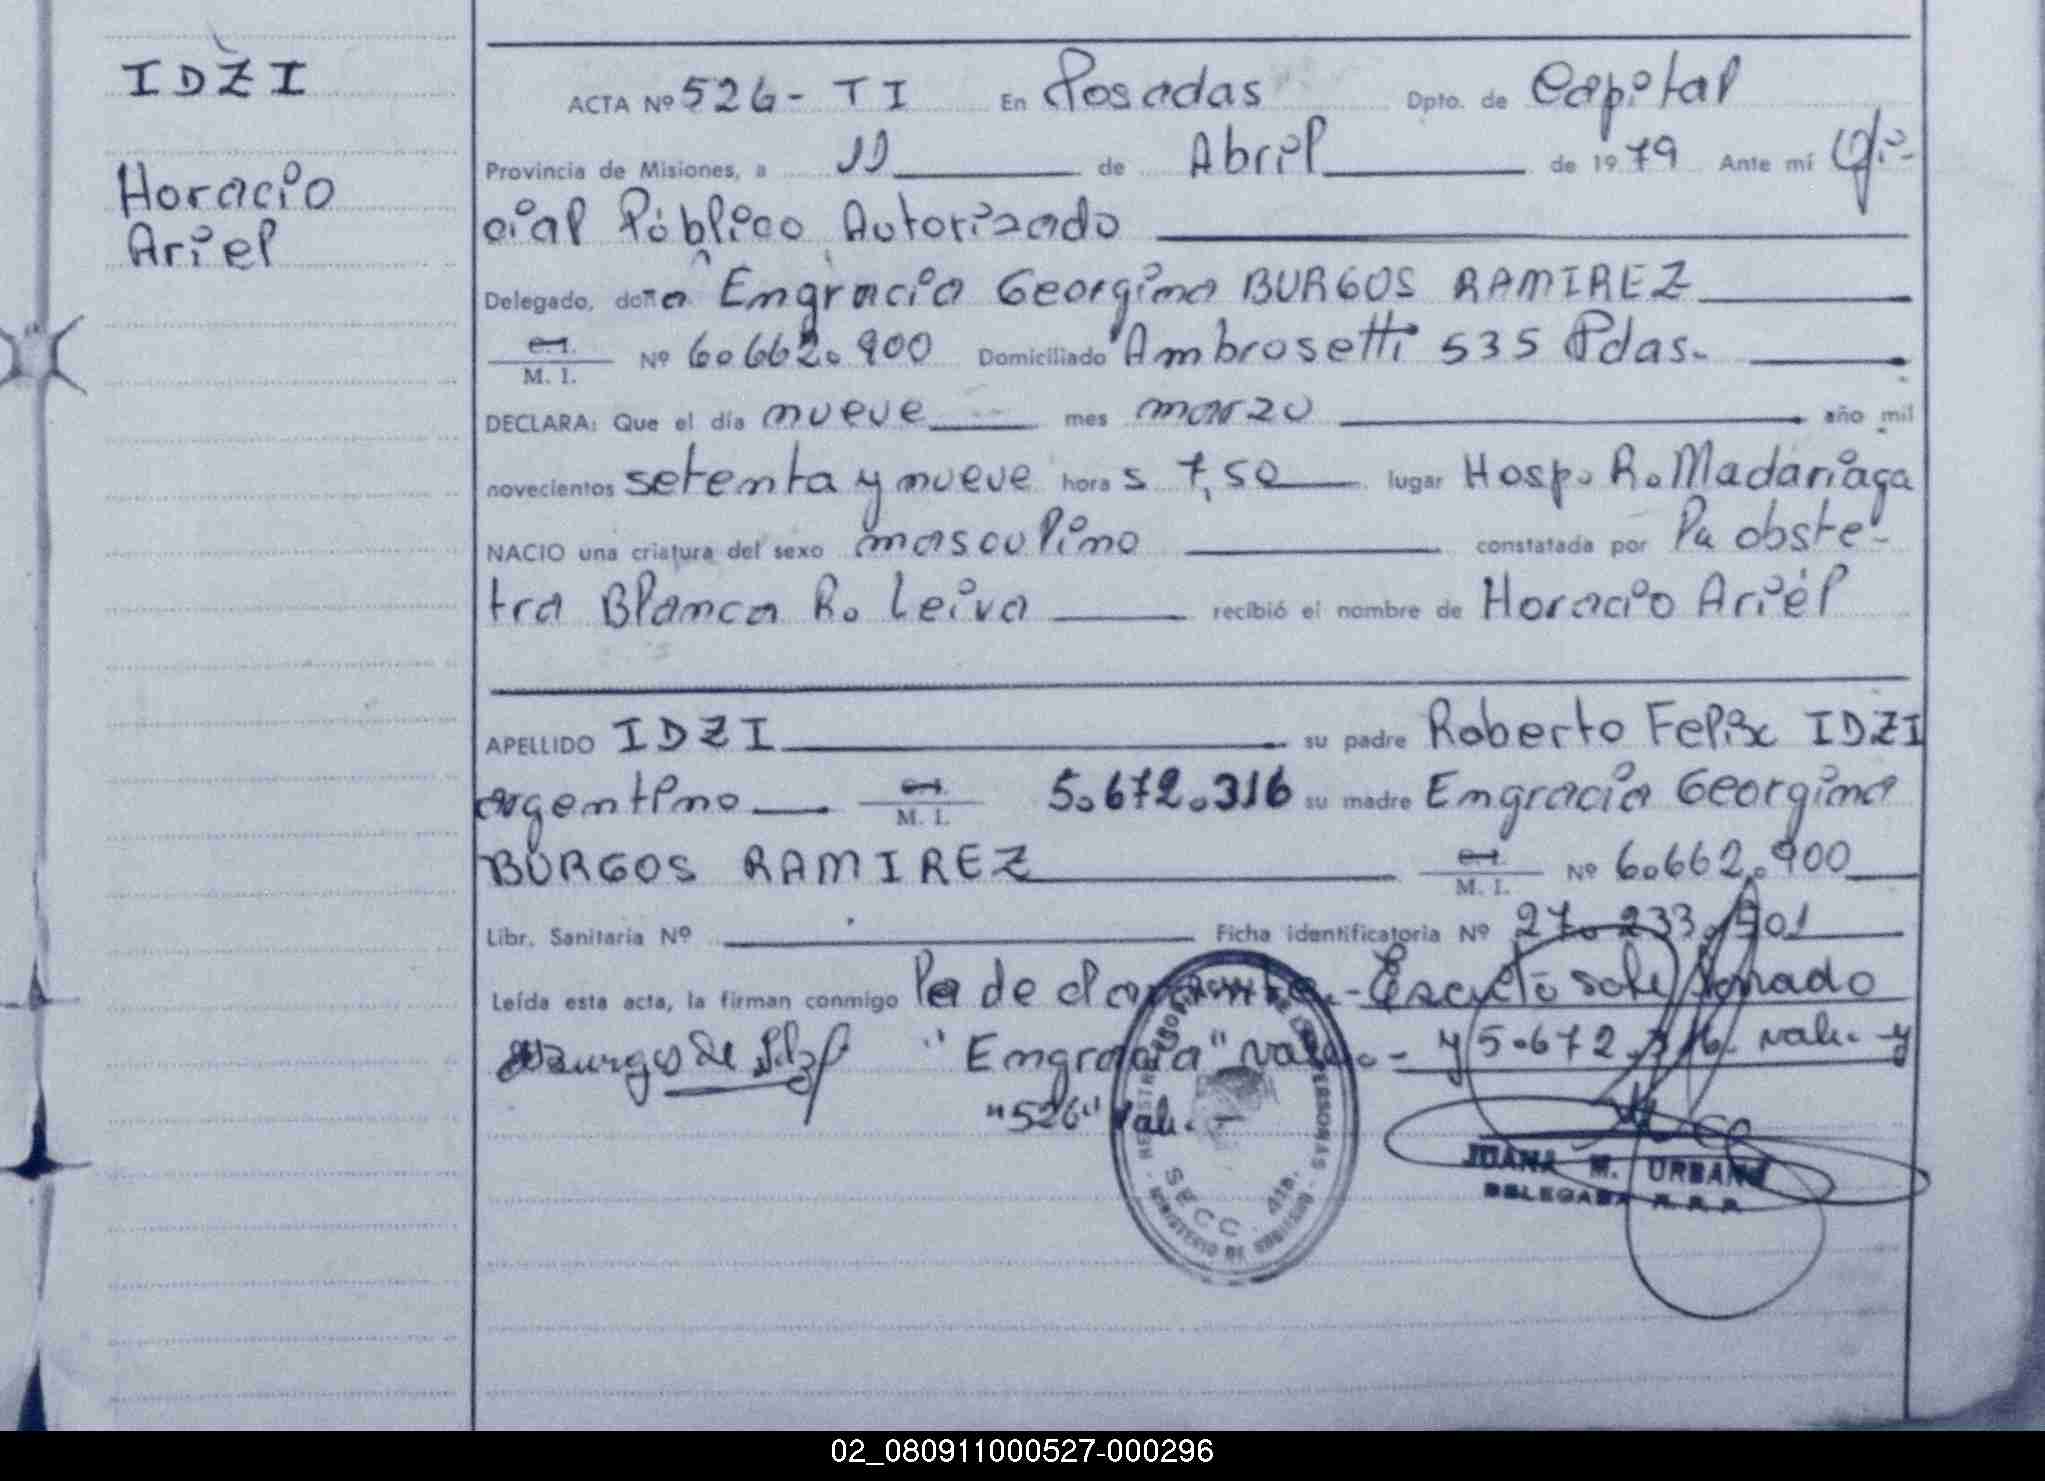 IDZI
Horacio
Ariel
ACTA Nº 526 - T I En Posadas Dpto. de Capital
Provincia de Misiones, a 11 de Abril de 1979 Ante mí Ofi-
cial Público Autorizado
Delegado, doña Engracia Georgina BURGOS RAMIREZ
C.I.
M. I. Nº 6.662.900 Domiciliado Ambrosetti 535 Pdas.
DECLARA: Que el día nueve mes marzo año mil
novecientos setenta y nueve hora s 7,50 lugar Hosp. R. Madariaga
NACIO una criatura del sexo masculino constatada por la obste-
tra Blanca R. Leiva recibió el nombre de Horacio Ariél
APELLIDO IDZI su padre Roberto Felix IDZI
argentino C.I.
M. I. 5.672.316 su madre Engracia Georgina
BURGOS RAMIREZ C.I.
M. I. Nº 6.662.900
Libr. Sanitaria Nº Ficha identificatoria Nº 27.233.501
Leída esta acta, la firman conmigo la declarante.-
"Engracia" vale.- y 5.672.316. vale.- y
"526" vale.
REGISTRO PROVINCIAL DE LAS PERSONAS
SECC. 4ta.
MINISTERIO DE GOBIERNO
JUANA M. URBANO
DELEGADA R. P. P.
02_080911000527-000296